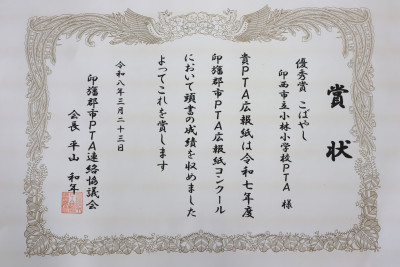 賞状
優秀賞 こばやし
印西市立小林小学校PTA 様
貴PTA広報紙は令和七年度
印旛郡市PTA広報紙コンクール
において頭書の成績を収めました
よってこれを賞します
令和八年三月二十三日
印旛郡市PTA連絡協議会
会長 平山 和年